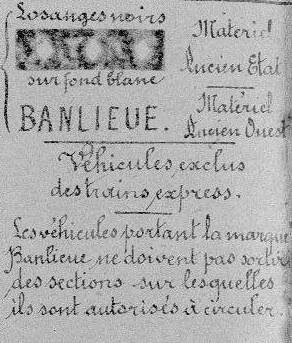 Losanges noirs
sur fond blanc
Matériel
Ancien Etat
BANLIEUE.
Matériel
Ancien Ouest
Véhicules exclus
des trains express.
Les véhicules portant la marque
Banlieue ne doivent pas sortir
des sections sur lesquelles
ils sont autorisés à circuler.